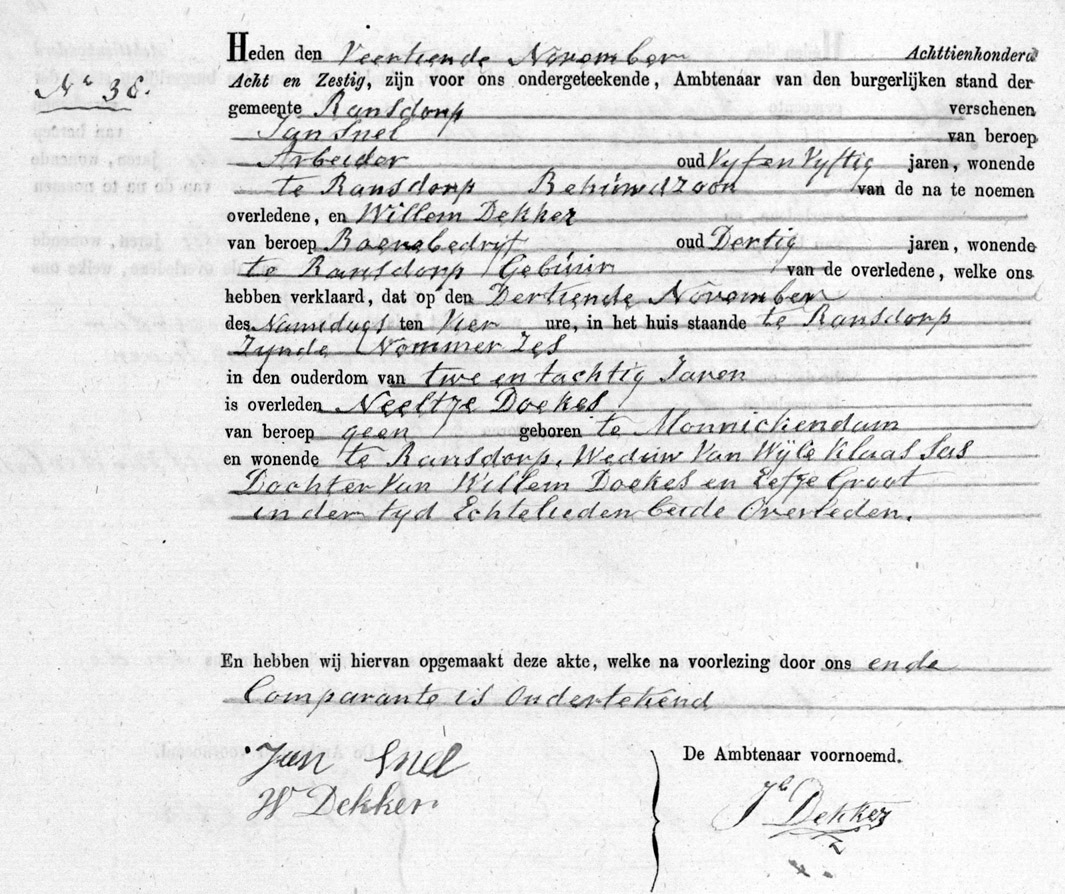 Heden den Veertiende November Achttienhonderd
No 38.
Acht en Zestig, zijn voor ons ondergeteekende, Ambtenaar van den burgerlijken stand der
gemeente Ransdorp verschenen
Jan Snel van beroep
Arbeider oud Vyf en Vyftig jaren, wonende
te Ransdorp Behuwdzoon van de na te noemen
overledene, en Willem Dekker
van beroep Boerebedrijf oud Dertig jaren, wonende
te Ransdorp Gebuur van de overledene, welke ons
hebben verklaard, dat op den Dertiende November
des Namidags ten Vier ure, in het huis staande te Ransdorp
Zynde Nommer Zes
in den ouderdom van twe en tachtig Jaren
is overleden Neeltje Doekes
van beroep geen geboren te Monnickendam
en wonende te Ransdorp, Weduw Van Wyle Klaas Sas
Dochter Van Willem Doekes en Eefje Groot
in der tyd Echtelieden beide Overleden.
En hebben wij hiervan opgemaakt deze akte, welke na voorlezing door ons ende
Comparante is Ondertekend
Jan Snel
W Dekker
De Ambtenaar voornoemd.
Dekker